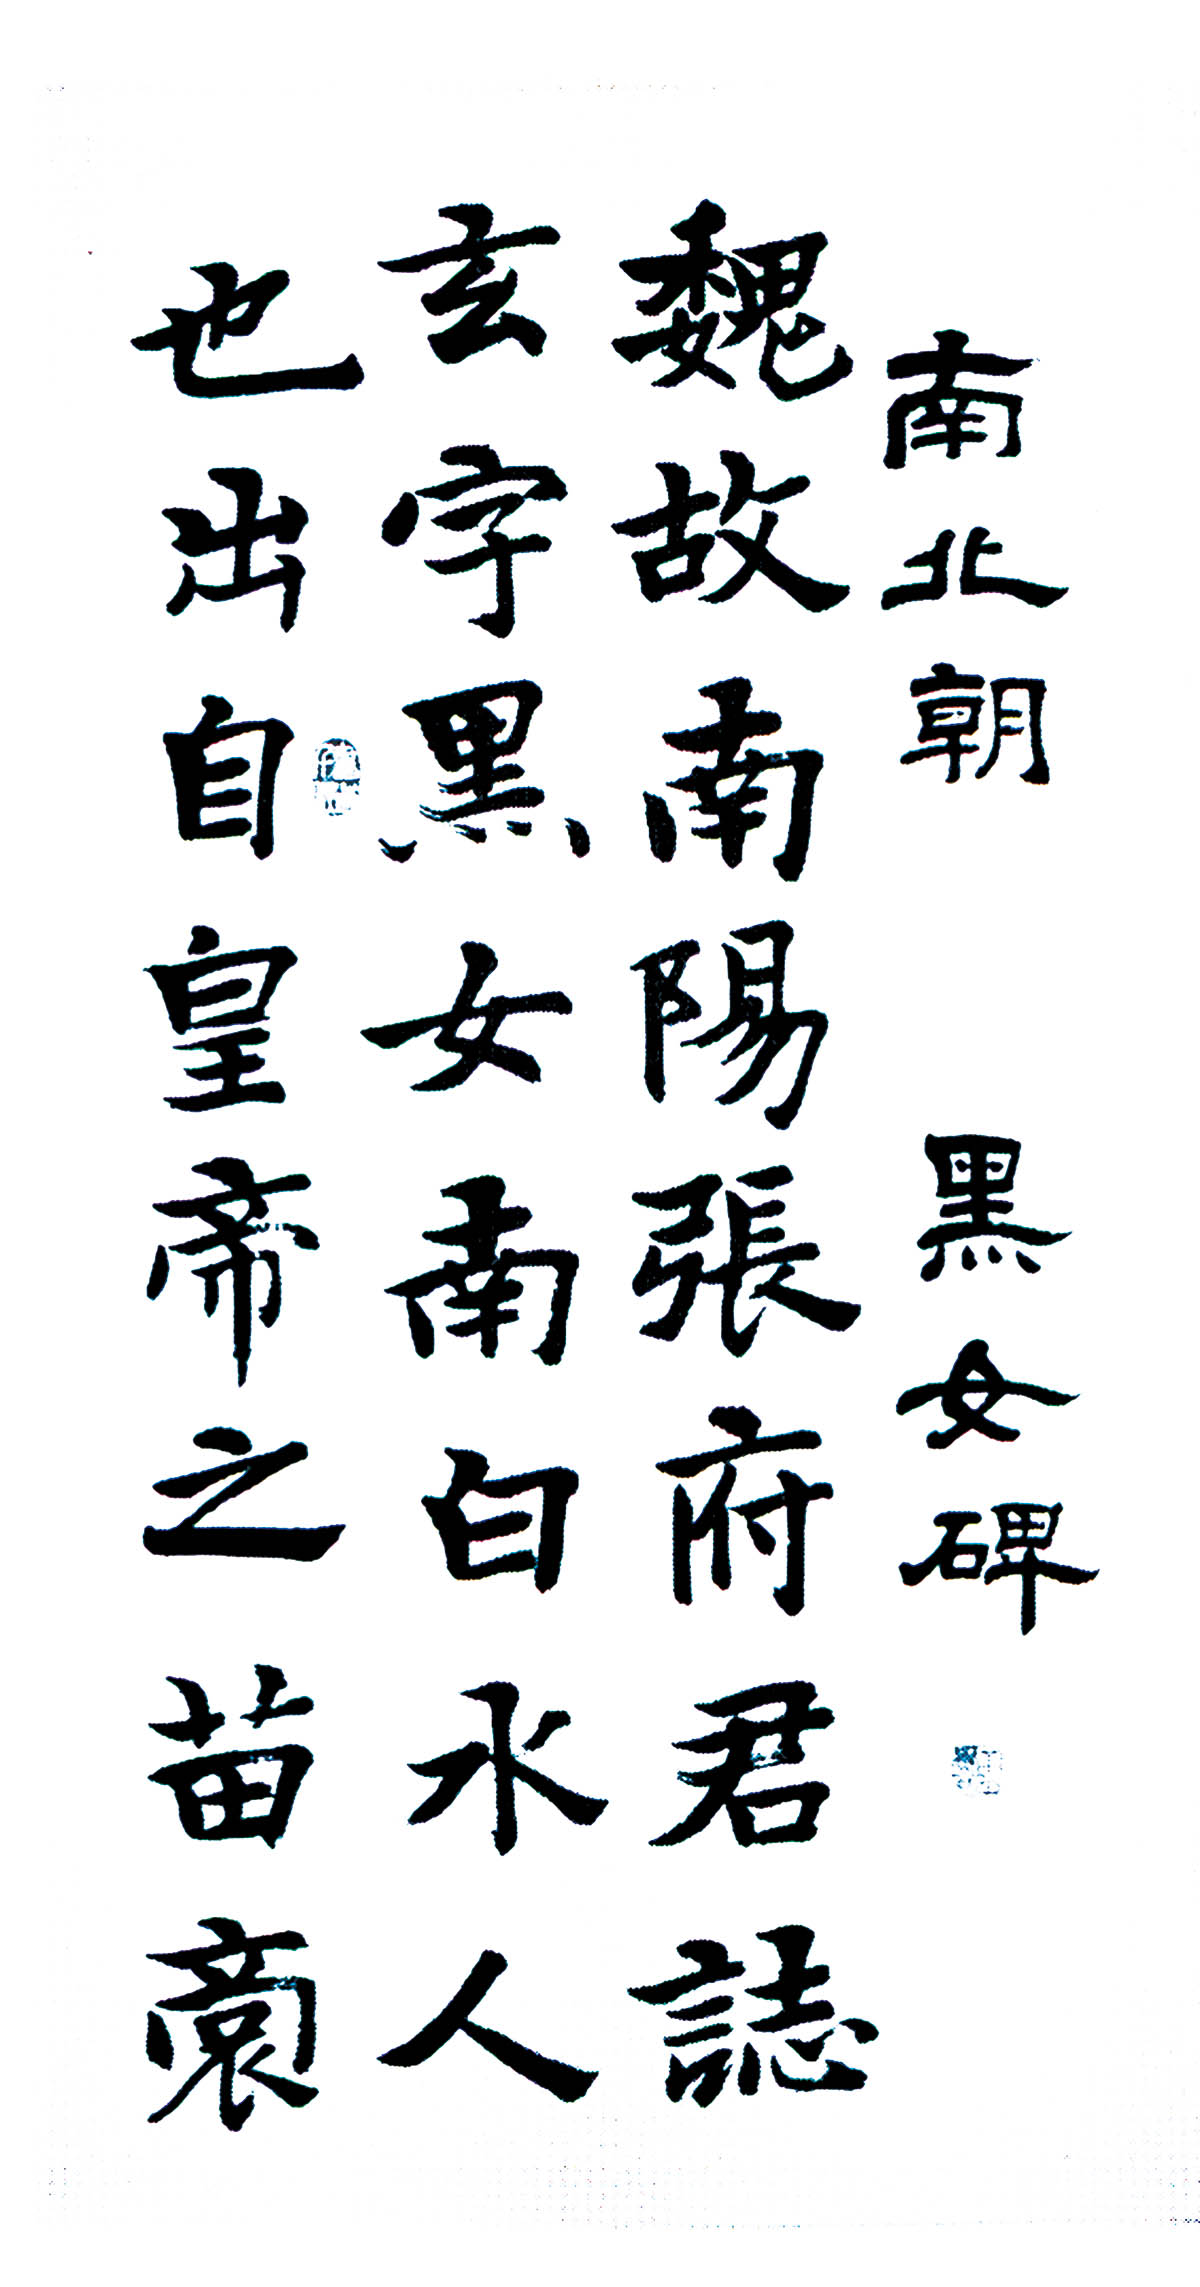 南北朝 黑女碑
魏故南陽張府君誌
玄字黑女南白水人
也出自皇帝之苗裔